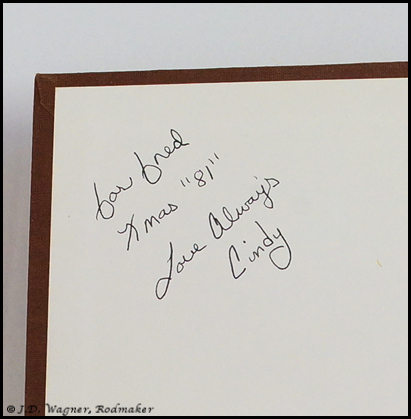 for Fred
Xmas "81"
Love Always
Cindy
© J.D. Wagner, Rodmaker